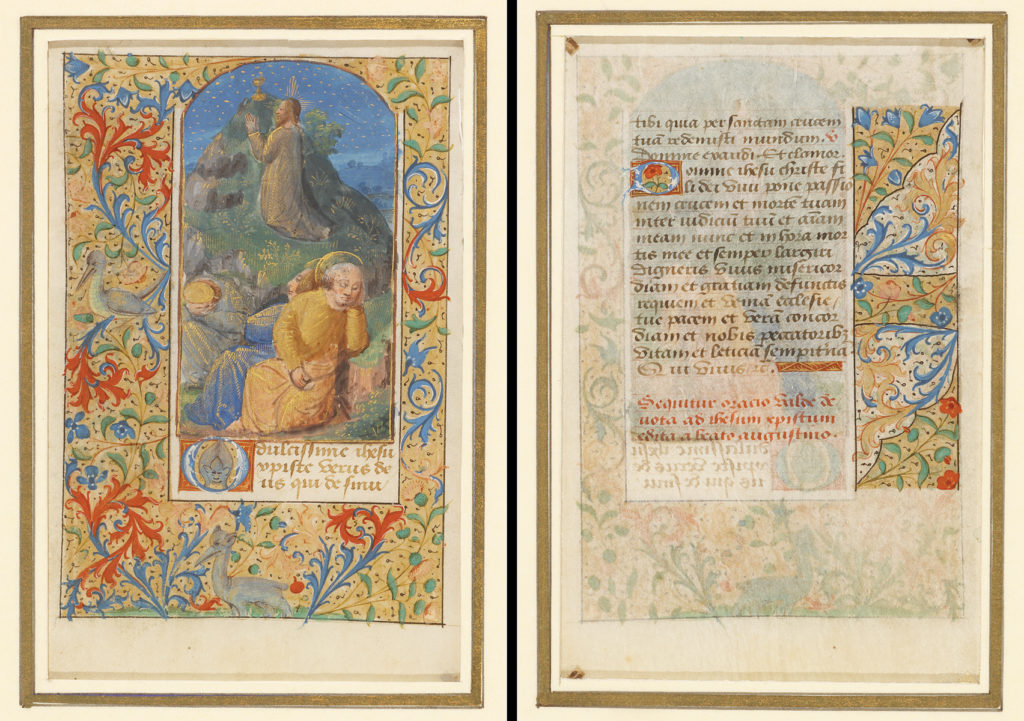 O dulcissime ihesu
xpiste verus de
us qui de sinu
tibi quia per sanctam crucem
tuā redemisti mundum. V
Domine exaudi. Et clamor.
Domine ihesu christe fi
li dei vivi pone passio
nem crucem et mortē tuam
inter iudiciū tuū et aīam
meam nunc et in hora mor
tis mee et semper largiri
digneris vivis misericor
diam et gratiam defunctis
requiem et veniā ecclesie
tue pacem et verā concor
diam et nobis peccatoribꝫ
vitam et leticiā sempitnā
Qui vivis ꝛc.
Sequitur oracio valde de
vota ad ihesum xpistum
edita a beato augustino.